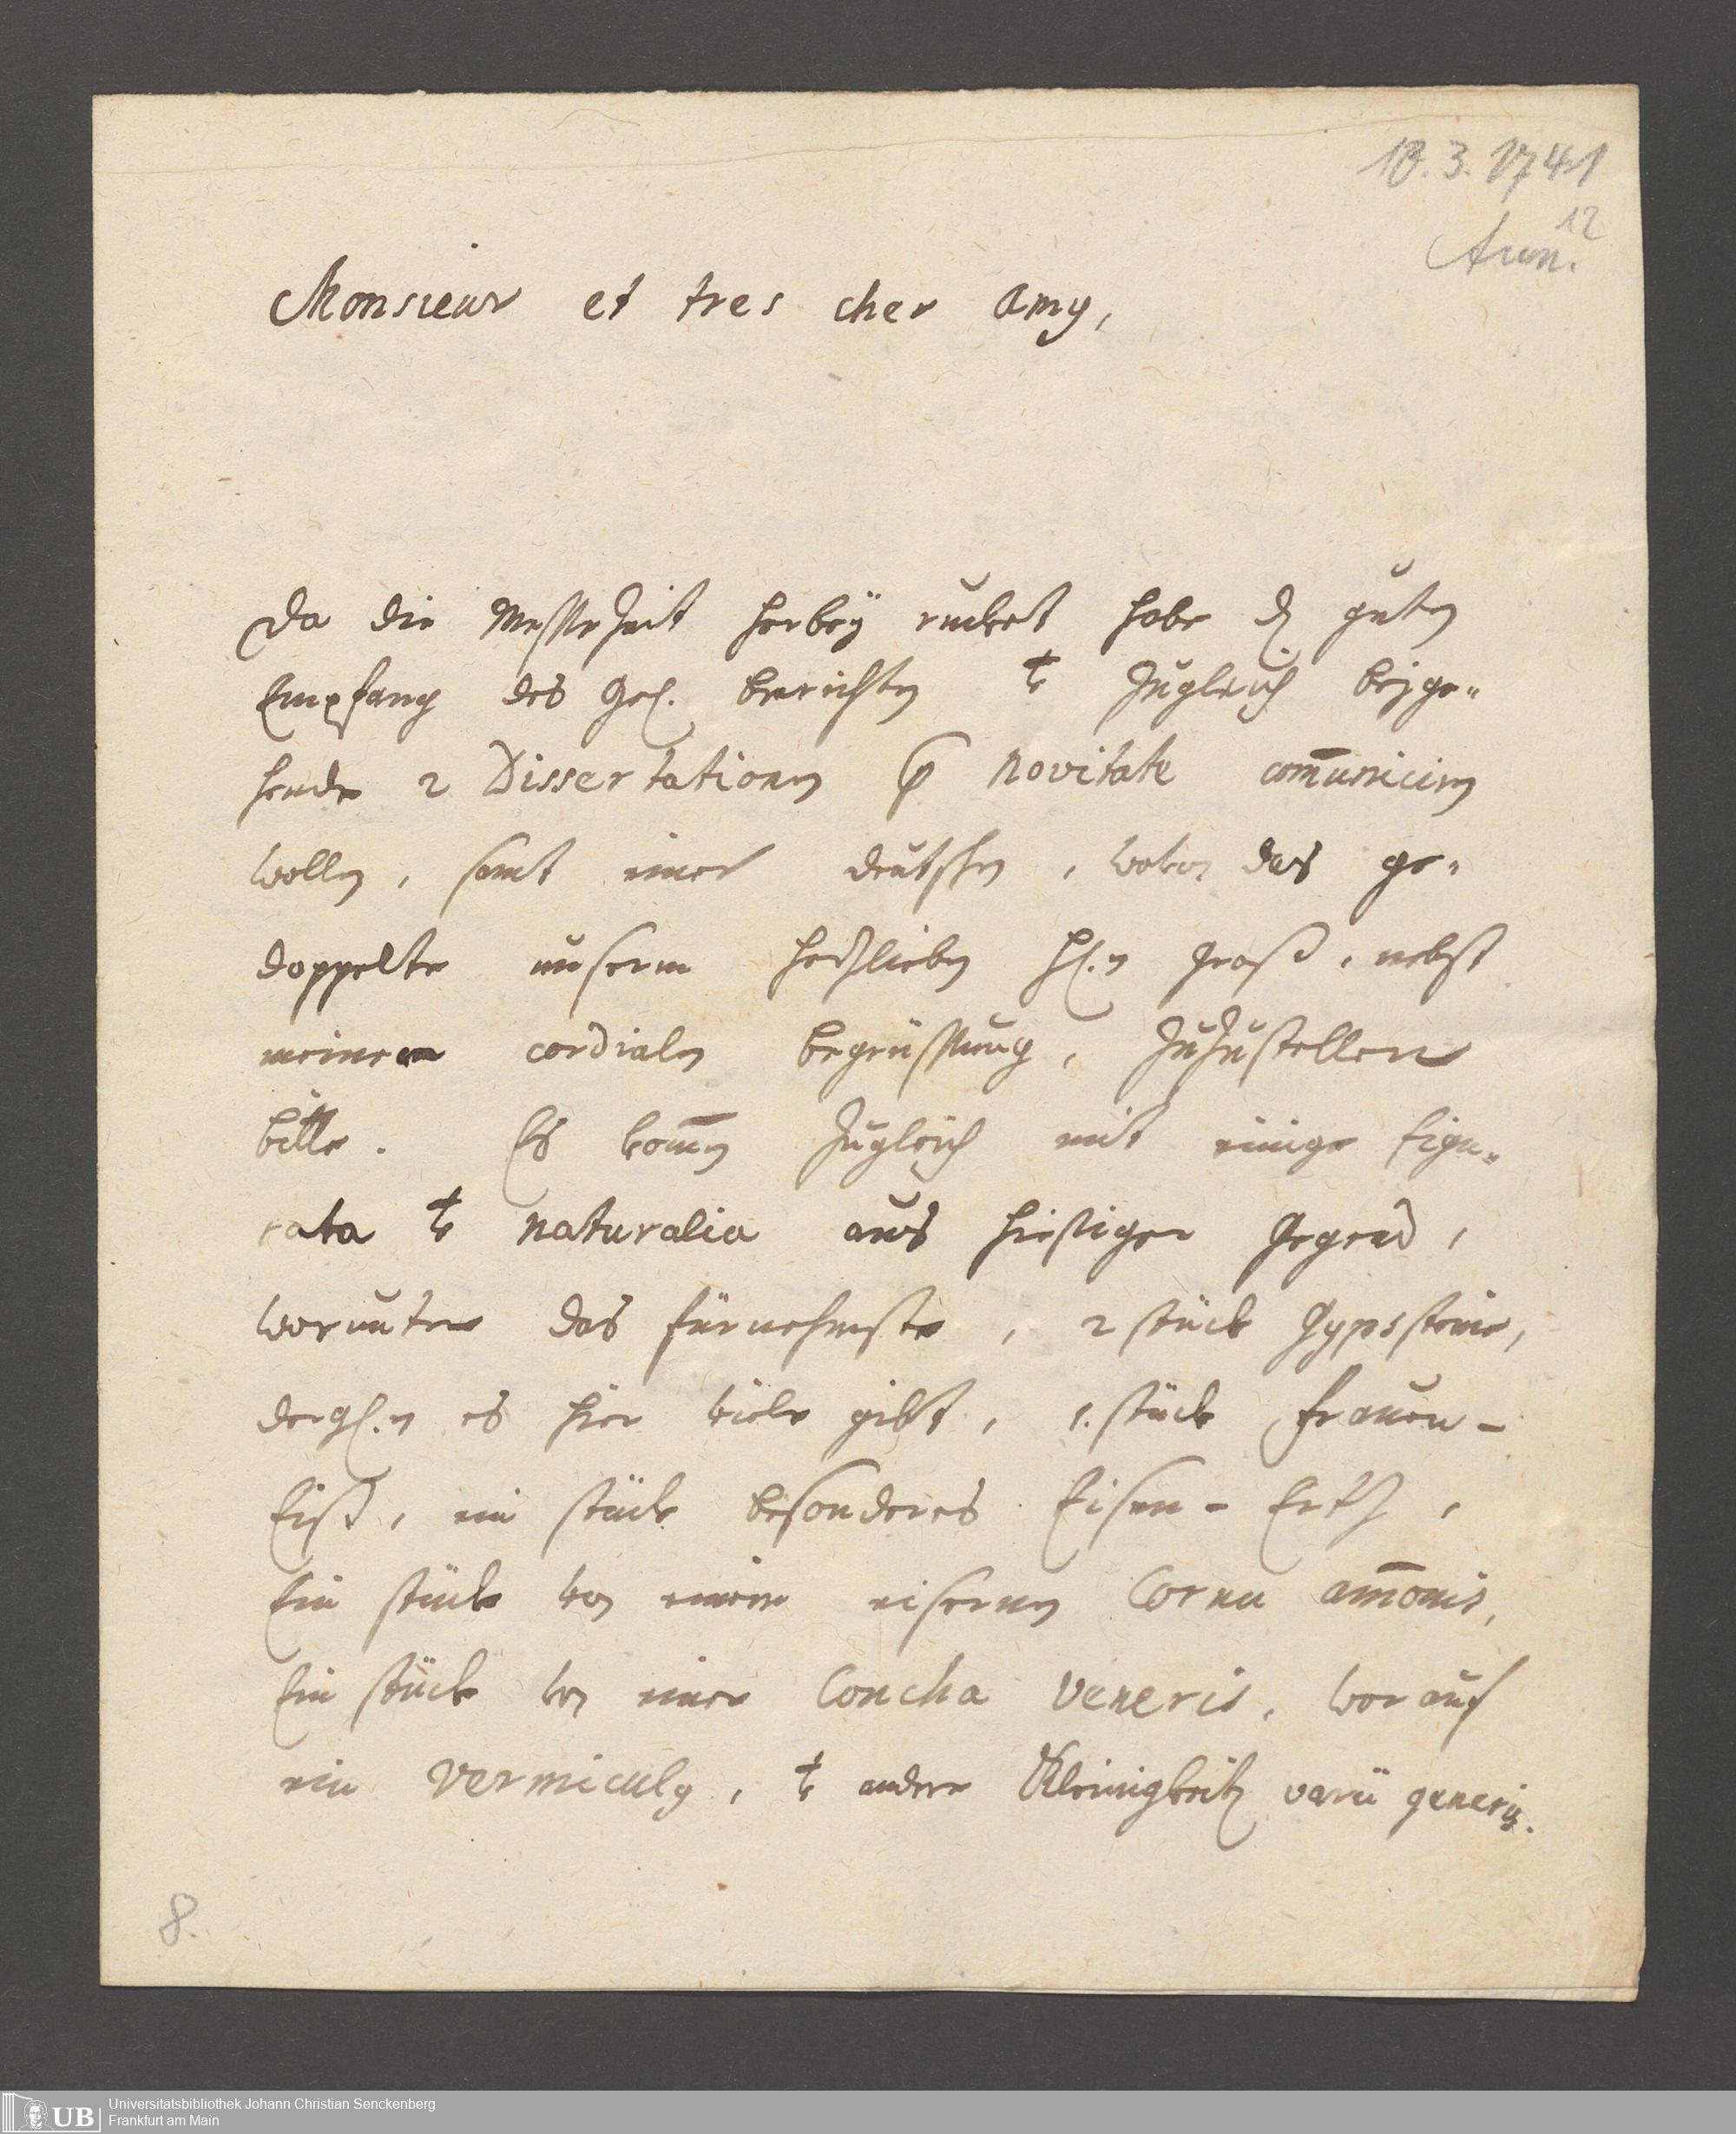 10.3.1741
12
Aum.
Monsieur et tres cher Amy,
Da die Messzeit herbeÿ rucket habe d. guten
Empfang des Ges. berichten & zugleich beyge-
hende 2 Dissertationen p novitate com̅unicirn
wollen, samt einer deutschen, wovon das ge-
doppelte unserm hertzlieben H. Groß, nebst
meiner cordialen begrüssung, zuzustellen
bitte. Es kom̅en zugleich mit einige figu-
rata & naturalia aus hiesiger Gegend,
worunter das fürnehmste, 2 stück Gypssteine,
dergl.n es hier viele gibt, 1. stück Frauen-
Eiß, ein stück besonderes Eisen-Ertz,
Ein stück von einem eisernen Cornu am̅onis,
Ein stück von einer Concha Veneris, worauf
ein Vermiculg, & andere Kleinigkeiten varii generis.
8.
UB
Universitätsbibliothek Johann Christian Senckenberg
Frankfurt am Main